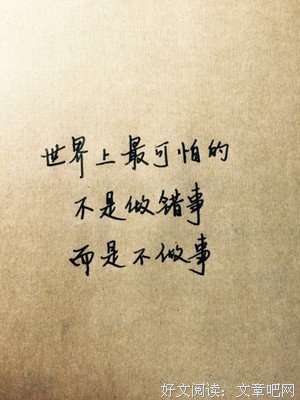 世界上最可怕的
不是做错事
而是不做事
好文阅读：文章吧网